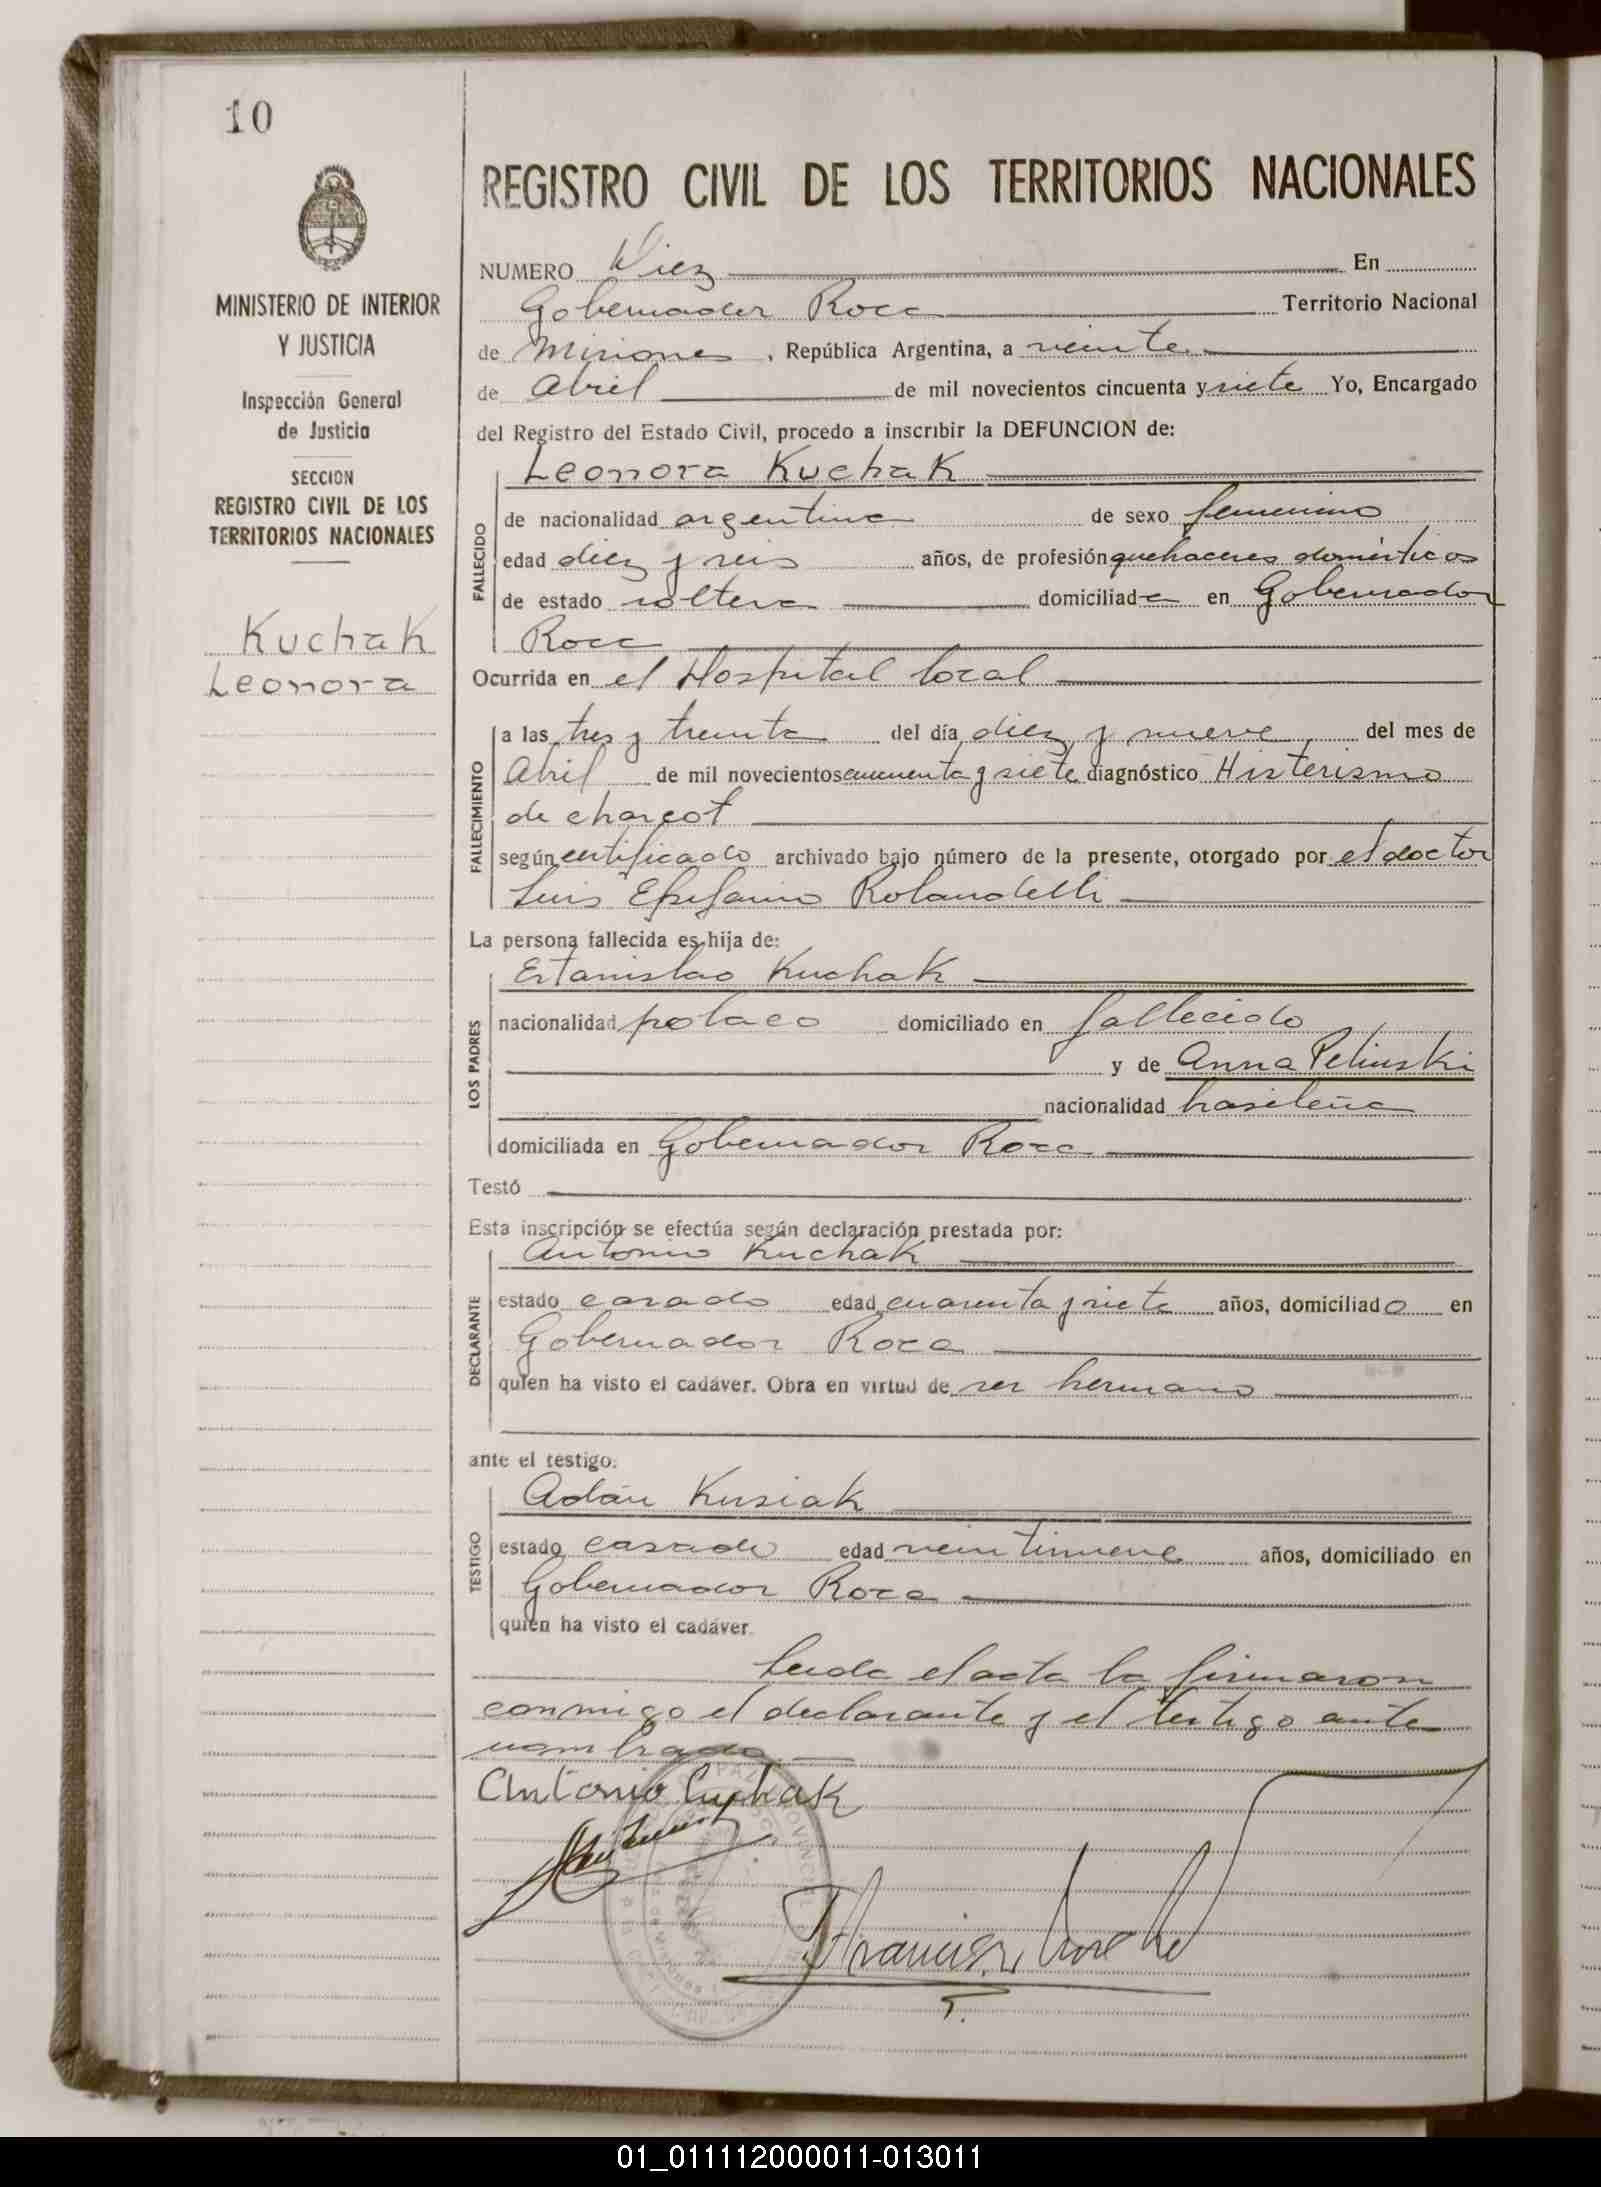 10
MINISTERIO DE INTERIOR
Y JUSTICIA
Inspección General
de Justicia
SECCION
REGISTRO CIVIL DE LOS
TERRITORIOS NACIONALES
Kuchak
Leonora
REGISTRO CIVIL DE LOS TERRITORIOS NACIONALES
NUMERO Diez En
Gobernador Roca Territorio Nacional
de Misiones, República Argentina, a veinte
de Abril de mil novecientos cincuenta y siete Yo, Encargado
del Registro del Estado Civil, procedo a inscribir la DEFUNCION de:
Leonora Kuchak
FALLECIDO
de nacionalidad argentina de sexo femenino
edad diez y seis años, de profesión quehaceres domésticos
de estado soltera domiciliada en Gobernador
Roca
Ocurrida en el Hospital local
FALLECIMIENTO
a las tres y treinta del día diez y nueve del mes de
Abril de mil novecientos cincuenta y siete diagnóstico Histerismo
de charcot
según certificado archivado bajo número de la presente, otorgado por el doctor
Luis Epifanio Rolandelli
La persona fallecida es hija de:
LOS PADRES
Estanislao Kuchak
nacionalidad polaco domiciliado en fallecido
y de Anna Pelinski
nacionalidad brasileña
domiciliada en Gobernador Roca
Testó
Esta inscripción se efectúa según declaración prestada por:
DECLARANTE
Antonio Kuchak
estado casado edad cuarenta y siete años, domiciliado en
Gobernador Roca
quien ha visto el cadáver. Obra en virtud de ser hermano
ante el testigo:
TESTIGO
Adán Kusiak
estado casado edad veintinueve años, domiciliado en
Gobernador Roca
quien ha visto el cadáver.
Leida el acta la firmaron
conmigo el declarante y el testigo ante
nombrado
Antonio Cuchak
01_011112000011-013011